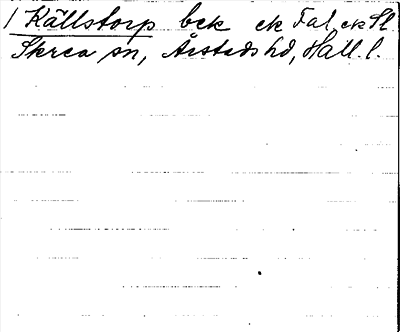 1 Källstorp bek ek Fal. ek Sl.
Skrea sn, Årstads hd, Hall. l.